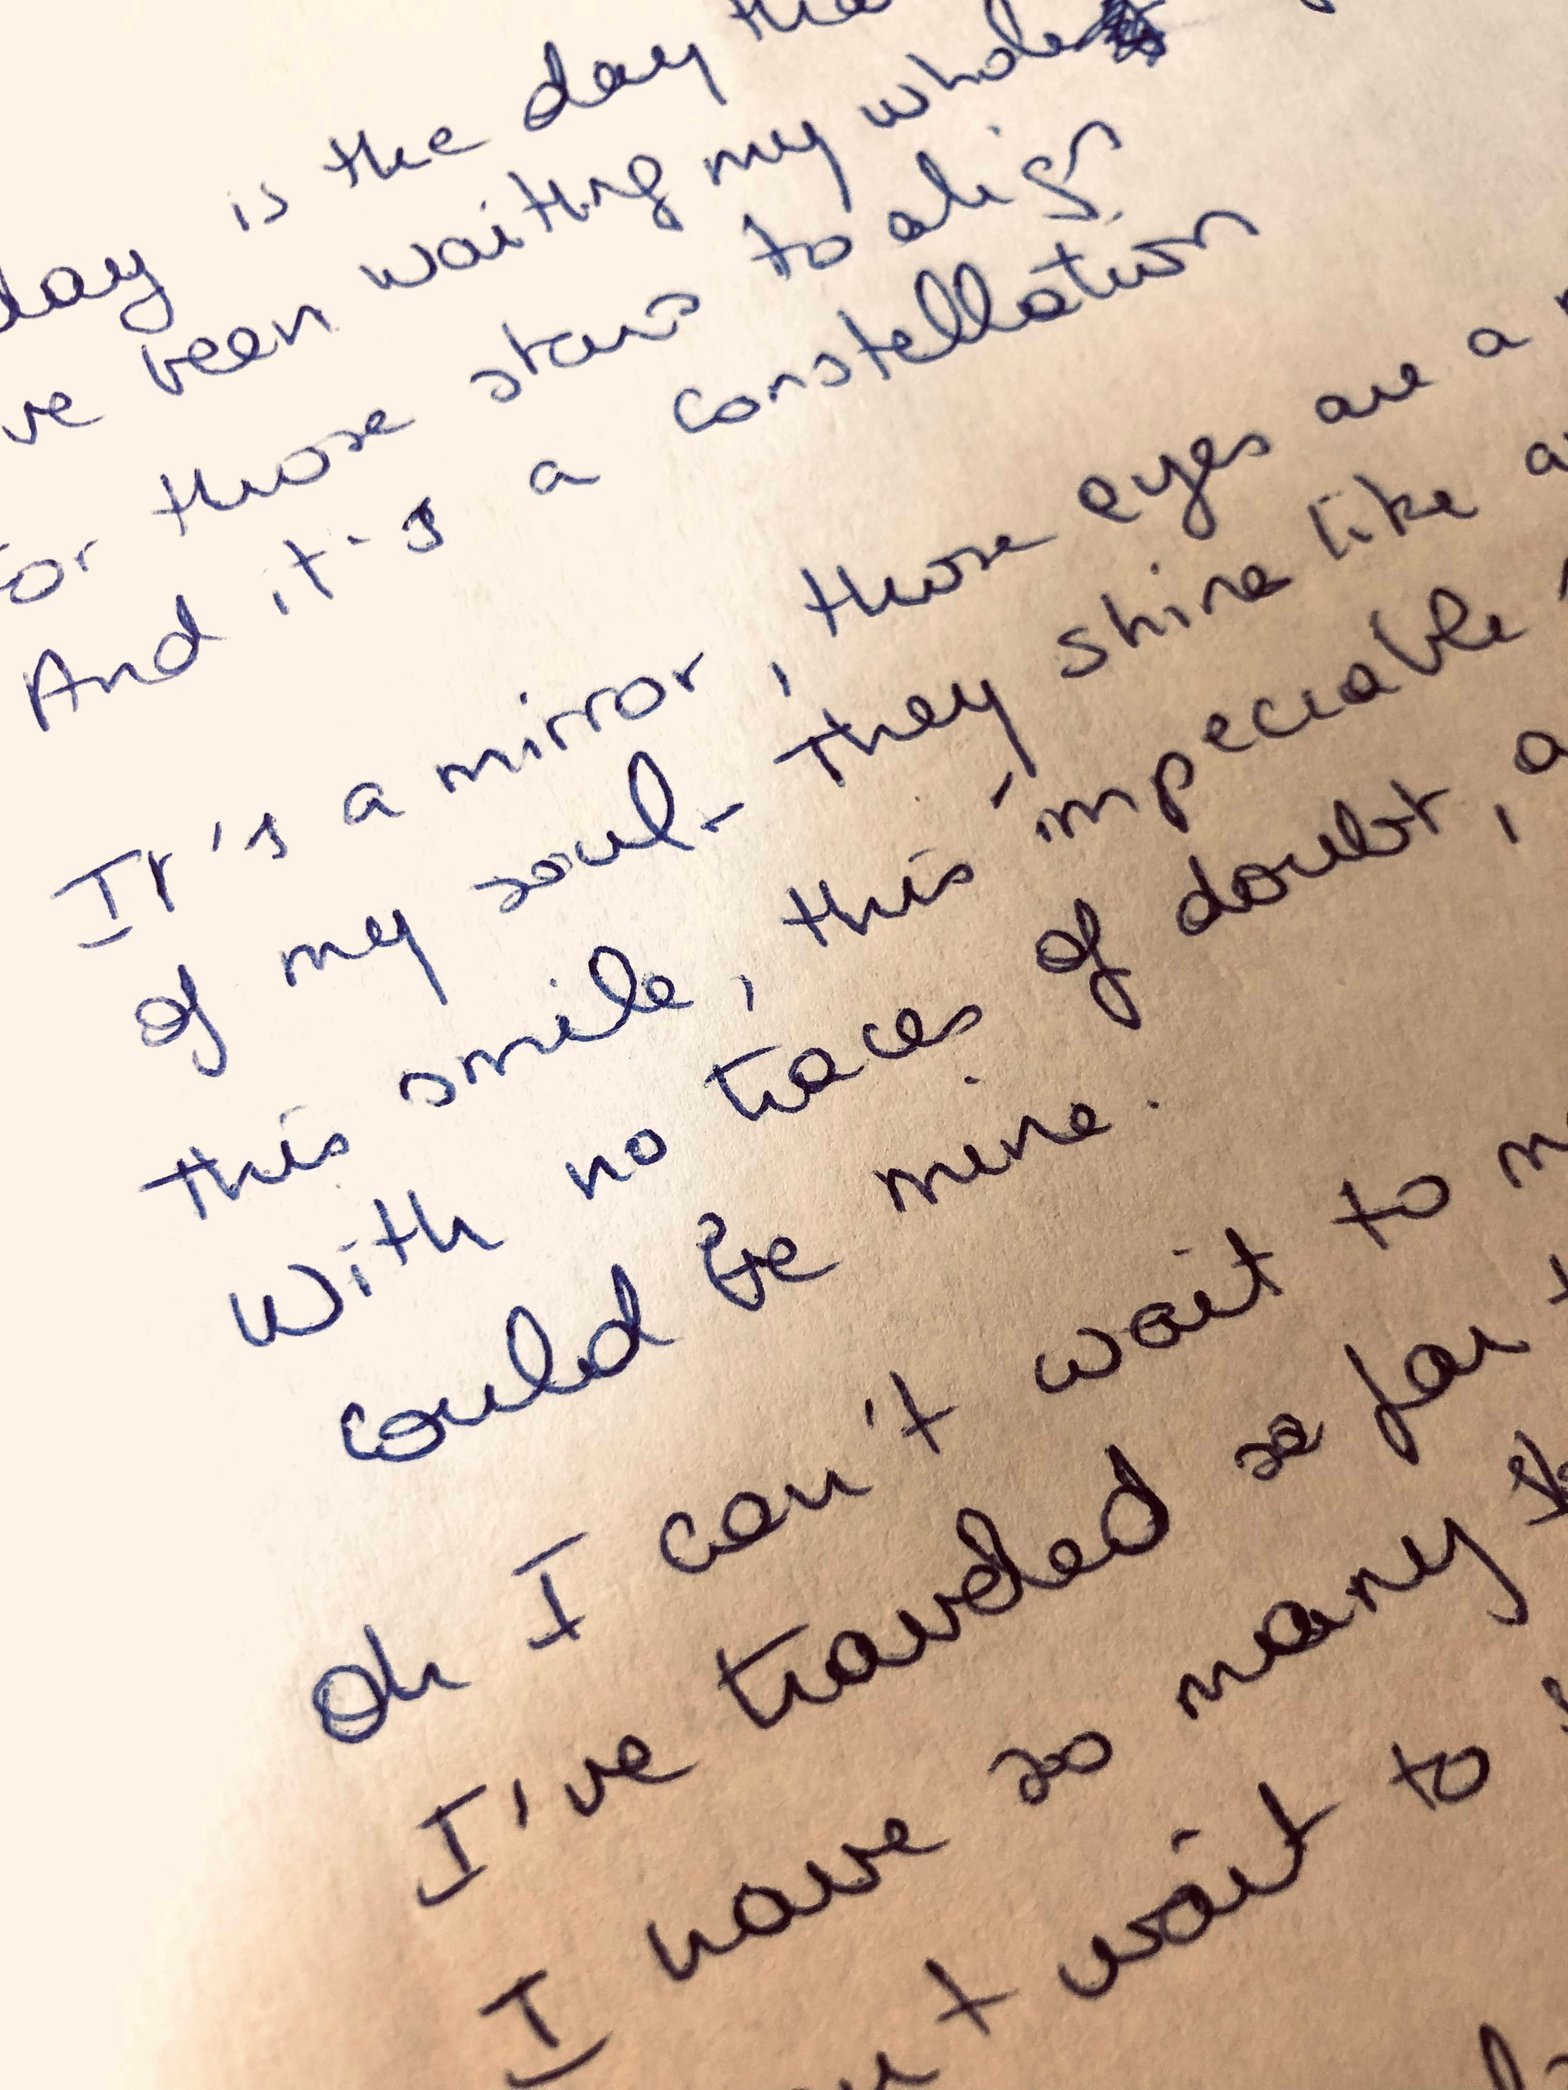 is the day
been waiting my whole
those stars to align
And it's a constellation
It's a mirror, those eyes are a
of my soul - they shine like
this smile, this impeccable
With no traces of doubt,
could be mine.
Oh I can't wait to
I've traveled so far
I have so many
wait to